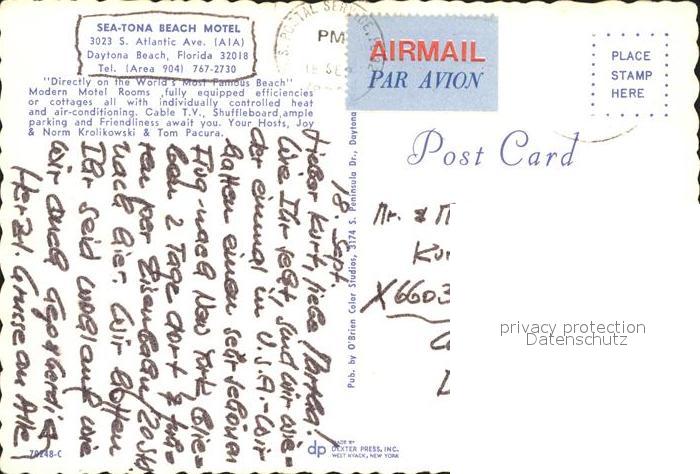 SEA-TONA BEACH MOTEL
3023 S. Atlantic Ave. (A1A)
Daytona Beach, Florida 32018
Tel. (Area 904) 767-2730
"Directly on the World's Most Famous Beach"
Modern Motel Rooms ,fully equipped efficiencies
or cottages all with individually controlled heat
and air-conditioning. Cable T.V., Shuffleboard,ample
parking and Friendliness await you. Your Hosts, Joy
& Norm Krolikowski & Tom Pacura.
U.S. POSTAL SERVICE,
PM
18 SEP
AIRMAIL
PAR AVION
PLACE
STAMP
HERE
Post Card
18. Sept.
Lieber Kurt, liebe Martha!
Wie Ihr seht, sind wir wie-
der einmal in U.S.A. - Wir
hatten einen sehr schönen
Flug nach New York blie-
ben 2 Tage dort & fuh-
ren per Eisenbahn
nach hier. Wir hoffen
Ihr seid wohlauf wie
wir auch
Herzl. Grüsse an Alle
Pub. by O'Brien Color Studios, 3174 S. Peninsula Dr., Daytona
Mr. & M
Kur
X6603
70248-C
dp
MADE BY
DEXTER PRESS, INC.
WEST NYACK, NEW YORK
privacy protection
Datenschutz